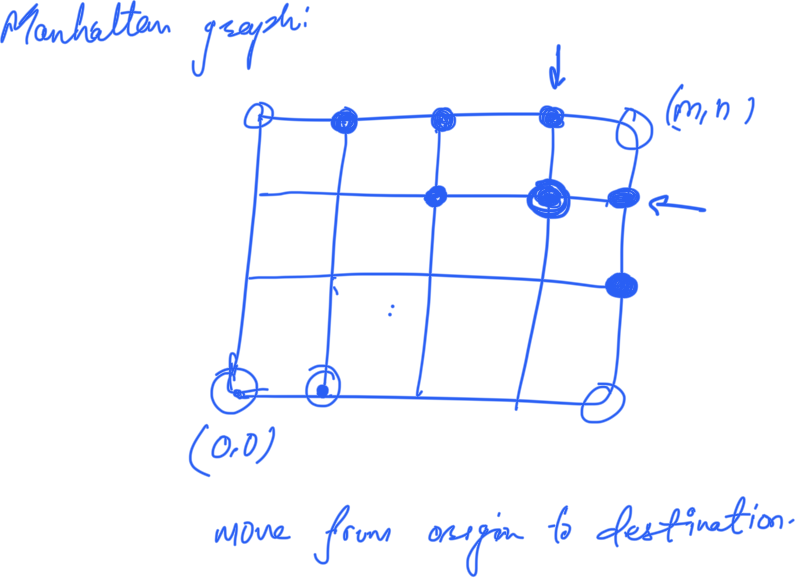 Manhattan graph:
(m,n)
(0,0)
move from origin to destination.